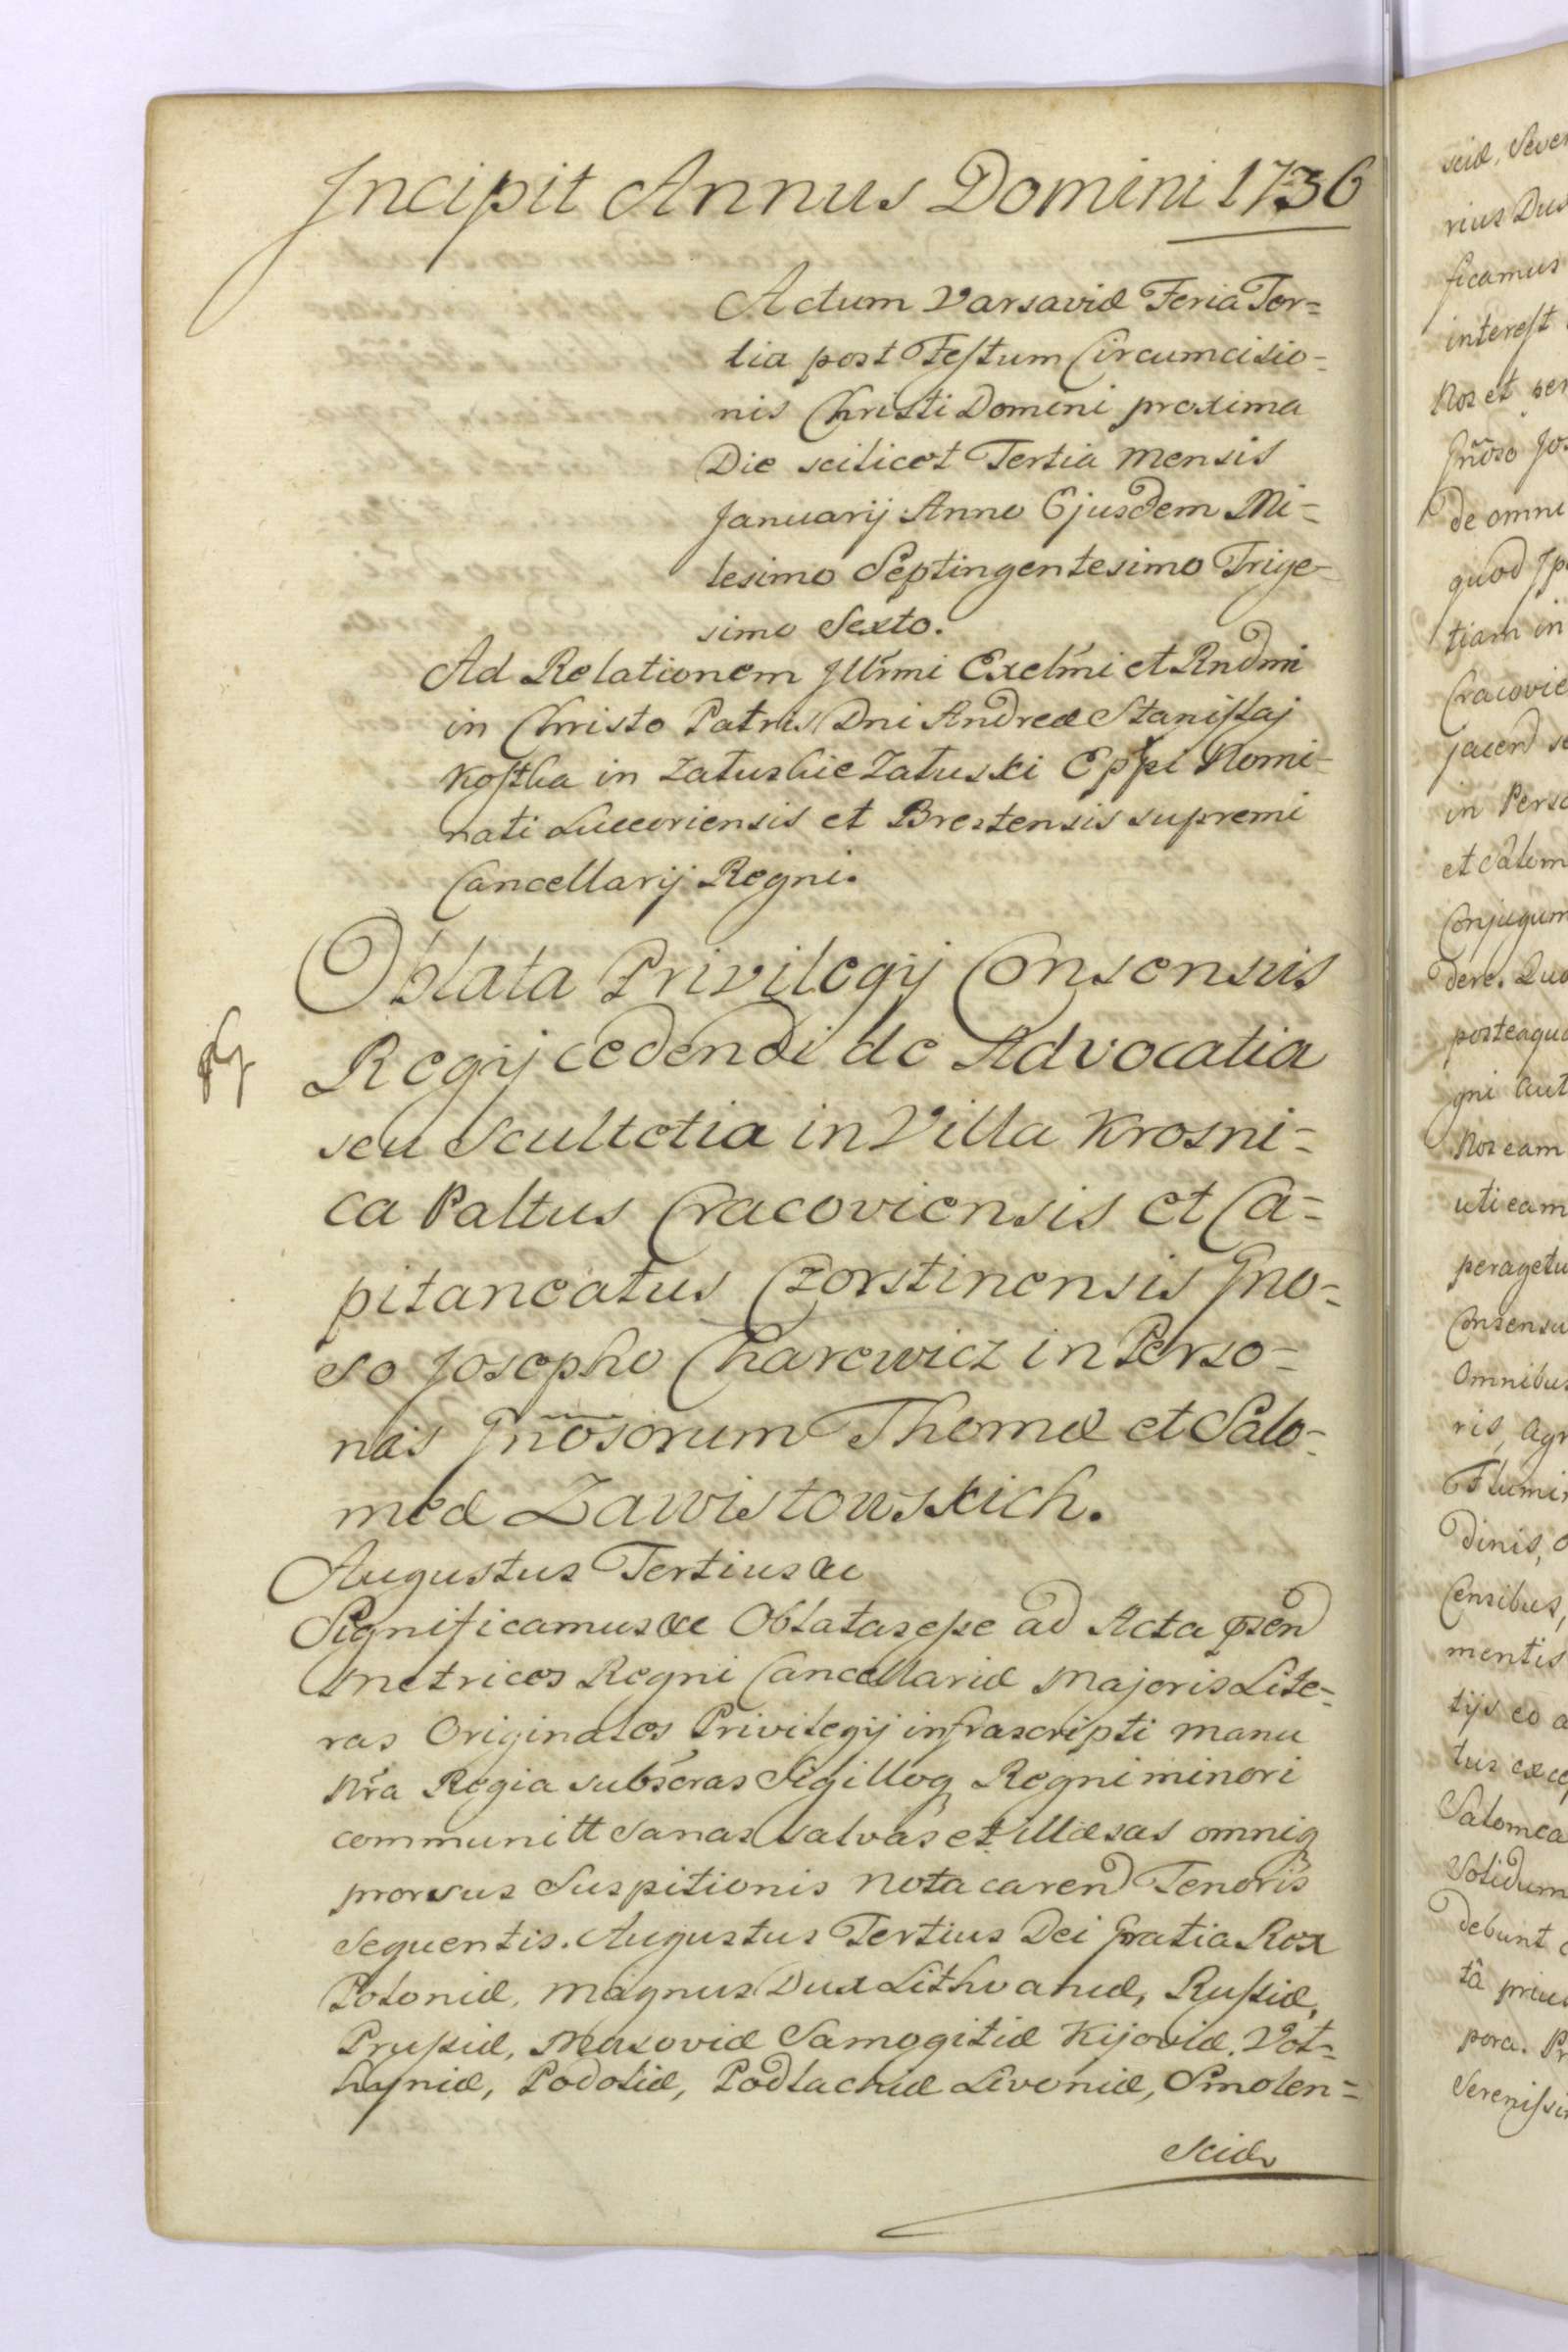 Incipit Annus Domini 1736
Actum Varsaviæ Feria Ter=
tia post Festum Circumcisio=
nis Christi Domini proxima
Die scilicet Tertia Mensis
Januarij Anno Ejusdem Mi=
lesimo Septingentesimo Trige=
simo Sexto.
Ad Relationem Illrmi Excelmi et Rndmi
in Christo Patris Dni Andreæ Stanislaj
Kostka in Załuskie Załuski Eppi Nomi=
nati Luceoriensis et Brestensis supremi
Cancellarij Regni.
Oblata Privilegij Consensus
Regij cedendi de Advocatia
seu Scultetia in Villa Krosni=
ca Paltus Cracoviensis et Ca=
pitaneatus Czorstinensis Gno=
so Josepho Charewicz in Perso=
nas Gnosorum Thomæ et Salo=
meæ Zawistowskich.
Augustus Tertius &c
Significamus &c Oblatas esse ad Acta psen
Metrices Regni Cancellariæ Majoris Lite=
ras Originales Privilegij infrascripti manu
Nra Regia subscras Sigilloq Regni minori
communitt sanas salvas et illæsas omniq
prorsus Suspitionis nota caren Tenoris
sequentis. Augustus Tertius Dei Gratia Rex
Poloniæ, Magnus Dux Lithvaniæ, Russiæ,
Prussiæ, Masoviæ Samogitiæ Kijoviæ, Vol=
hyniæ, Podoliæ, Podlachiæ Livoniæ, Smolen=
sciæ
sciæ, Seve
rius Du
ficamus
interest
Nos et per
Gnoso Jo
de omni
quod Ip
tiam in
Cracovie
jacen
in Pers
et
Conjugum
dere. Quo
posteaqu
gni aut
Nos eam
uti eam
peragetu
Consensu
Omnibus
ris, agr
Flumi
dinis,
Censibus,
mentis
tijs eo a
tus excep
Salomea
solidum
debunt
tâ prius
pora. Pr
Serenissi